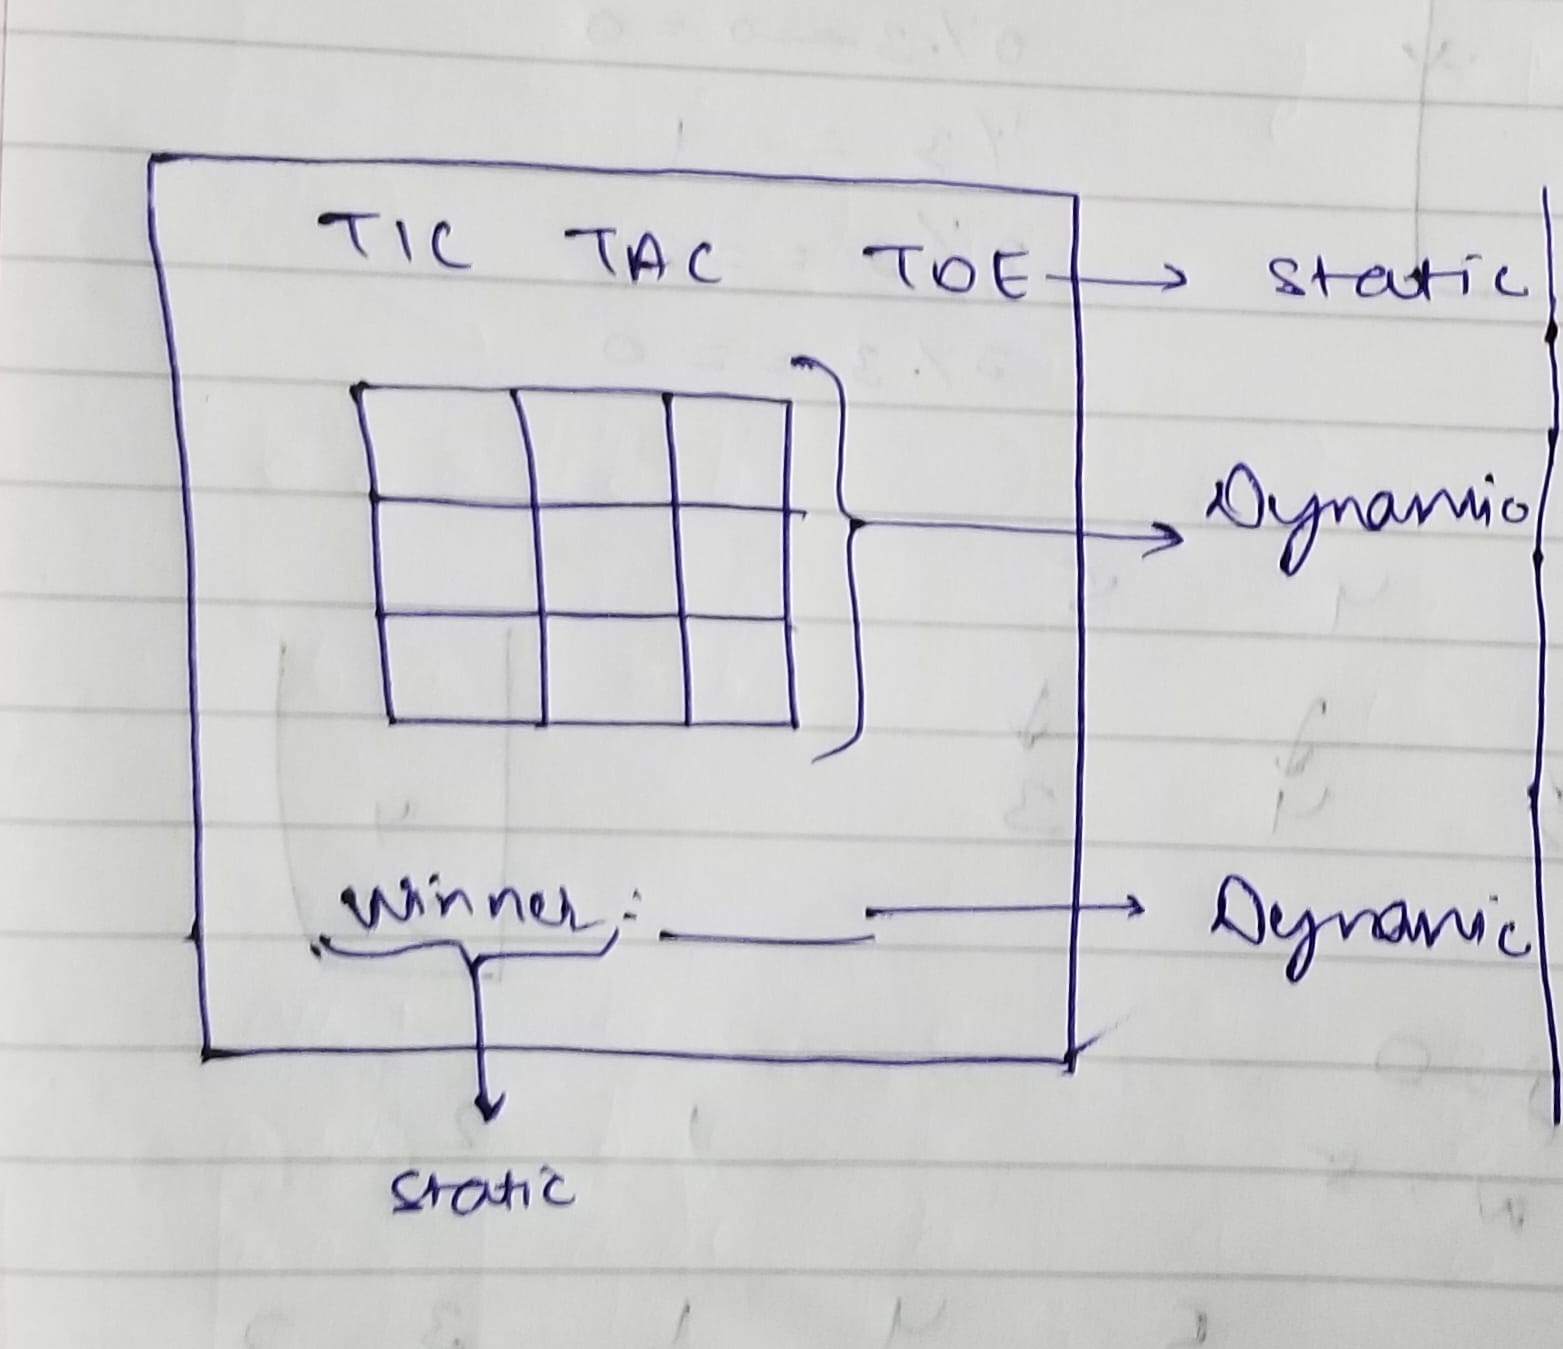 TIC TAC TOE → static
Dynamic
Winner : ____ → Dynamic
static